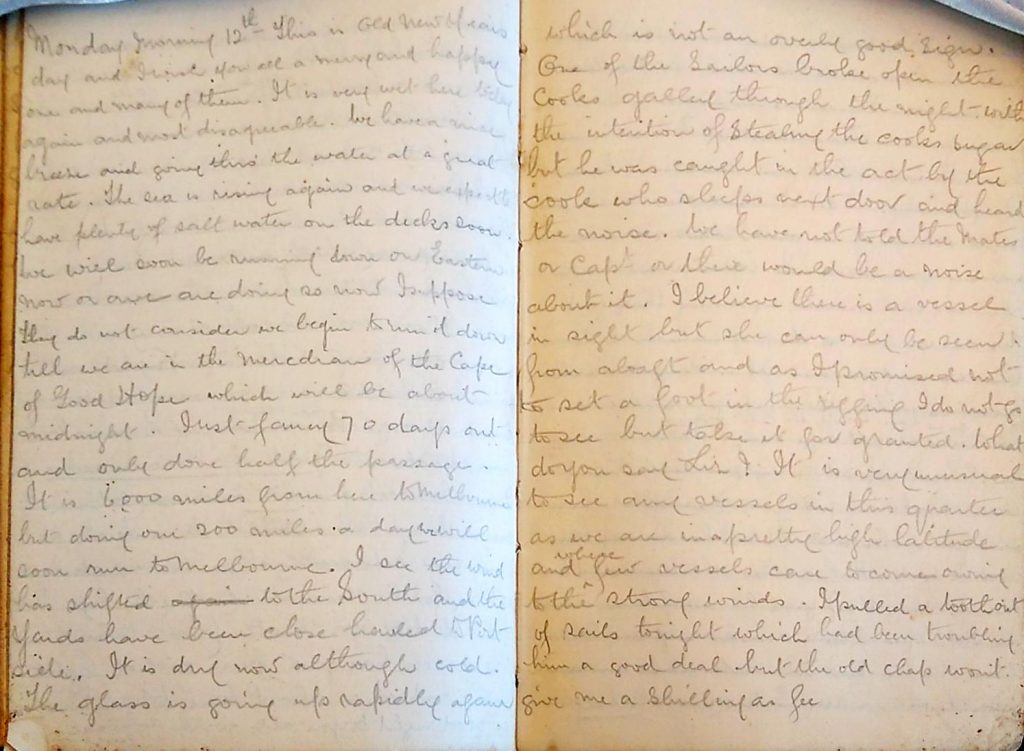 Monday morning 12th This is Old New Years
day and I wish you all a merry and happy
one and many of them. It is very wet here today
again and most disagreeable. We have a nice
breeze and going thro' the water at a great
rate. The sea is rising again and we expect to
have plenty of salt water on the decks soon.
We will soon be running down our Eastern
now or are doing so now I suppose
they do not consider we begin to run it down
till we are in the meredian of the Cape
of Good Hope which will be about
midnight. Just fancy 70 days out
and only done half the passage.
It is 6000 miles from here to Melbourne
but doing our 200 miles a day we will
soon run to Melbourne. I see the wind
has shifted again to the South and the
Yards have been close hauled to Port
side. It is dry now although cold.
The glass is going up rapidly again
which is not an overly good sign.
One of the Sailors broke open the
Cooks galley through the night with
the intention of Stealing the cooks sugar
but he was caught in the act by the
cook who sleeps next door and heard
the noise. We have not told the Mates
or Capt or there would be a noise
about it. I believe there is a vessel
in sight but she can only be seen
from aloaft and as I promised not
to set a foot in the rigging I do not go
to see but take it for granted. What
do you say Liz? It is very unusual
to see any vessels in this quarter
as we are in a pretty high latitude
and where few vessels care to come owing
to the strong winds. I pulled a tooth out
of sails tonight which had been troubling
him a good deal but the old chap won't
give me a Shilling as fee